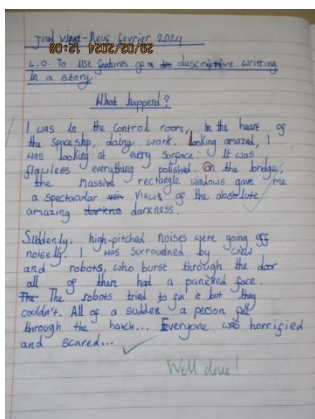 Jeudi vingt-neuf fevrier 2024
29/02/2024 12:08:10
L.O. To use features of a descriptive writting
in a story.
What happend?
I was in the control room, in the heart of
the Spaceship, doing work. Looking amazed, I
was looking at every surface. It was
flawless everything polished. On the bridge,
the Massive rectangle windows gave me
a spectacular views of the absolute
amazing darkness.
Suddenly, high-pitched noises were going off
noisely. I was surroudned by crew
and robots, who burst through the door
all of them had a panicked face.
The The robots tried to fix it but they
couldn't. All of a sudden a person
through the hatch... Everyone was horrified
and scared...
Well done!